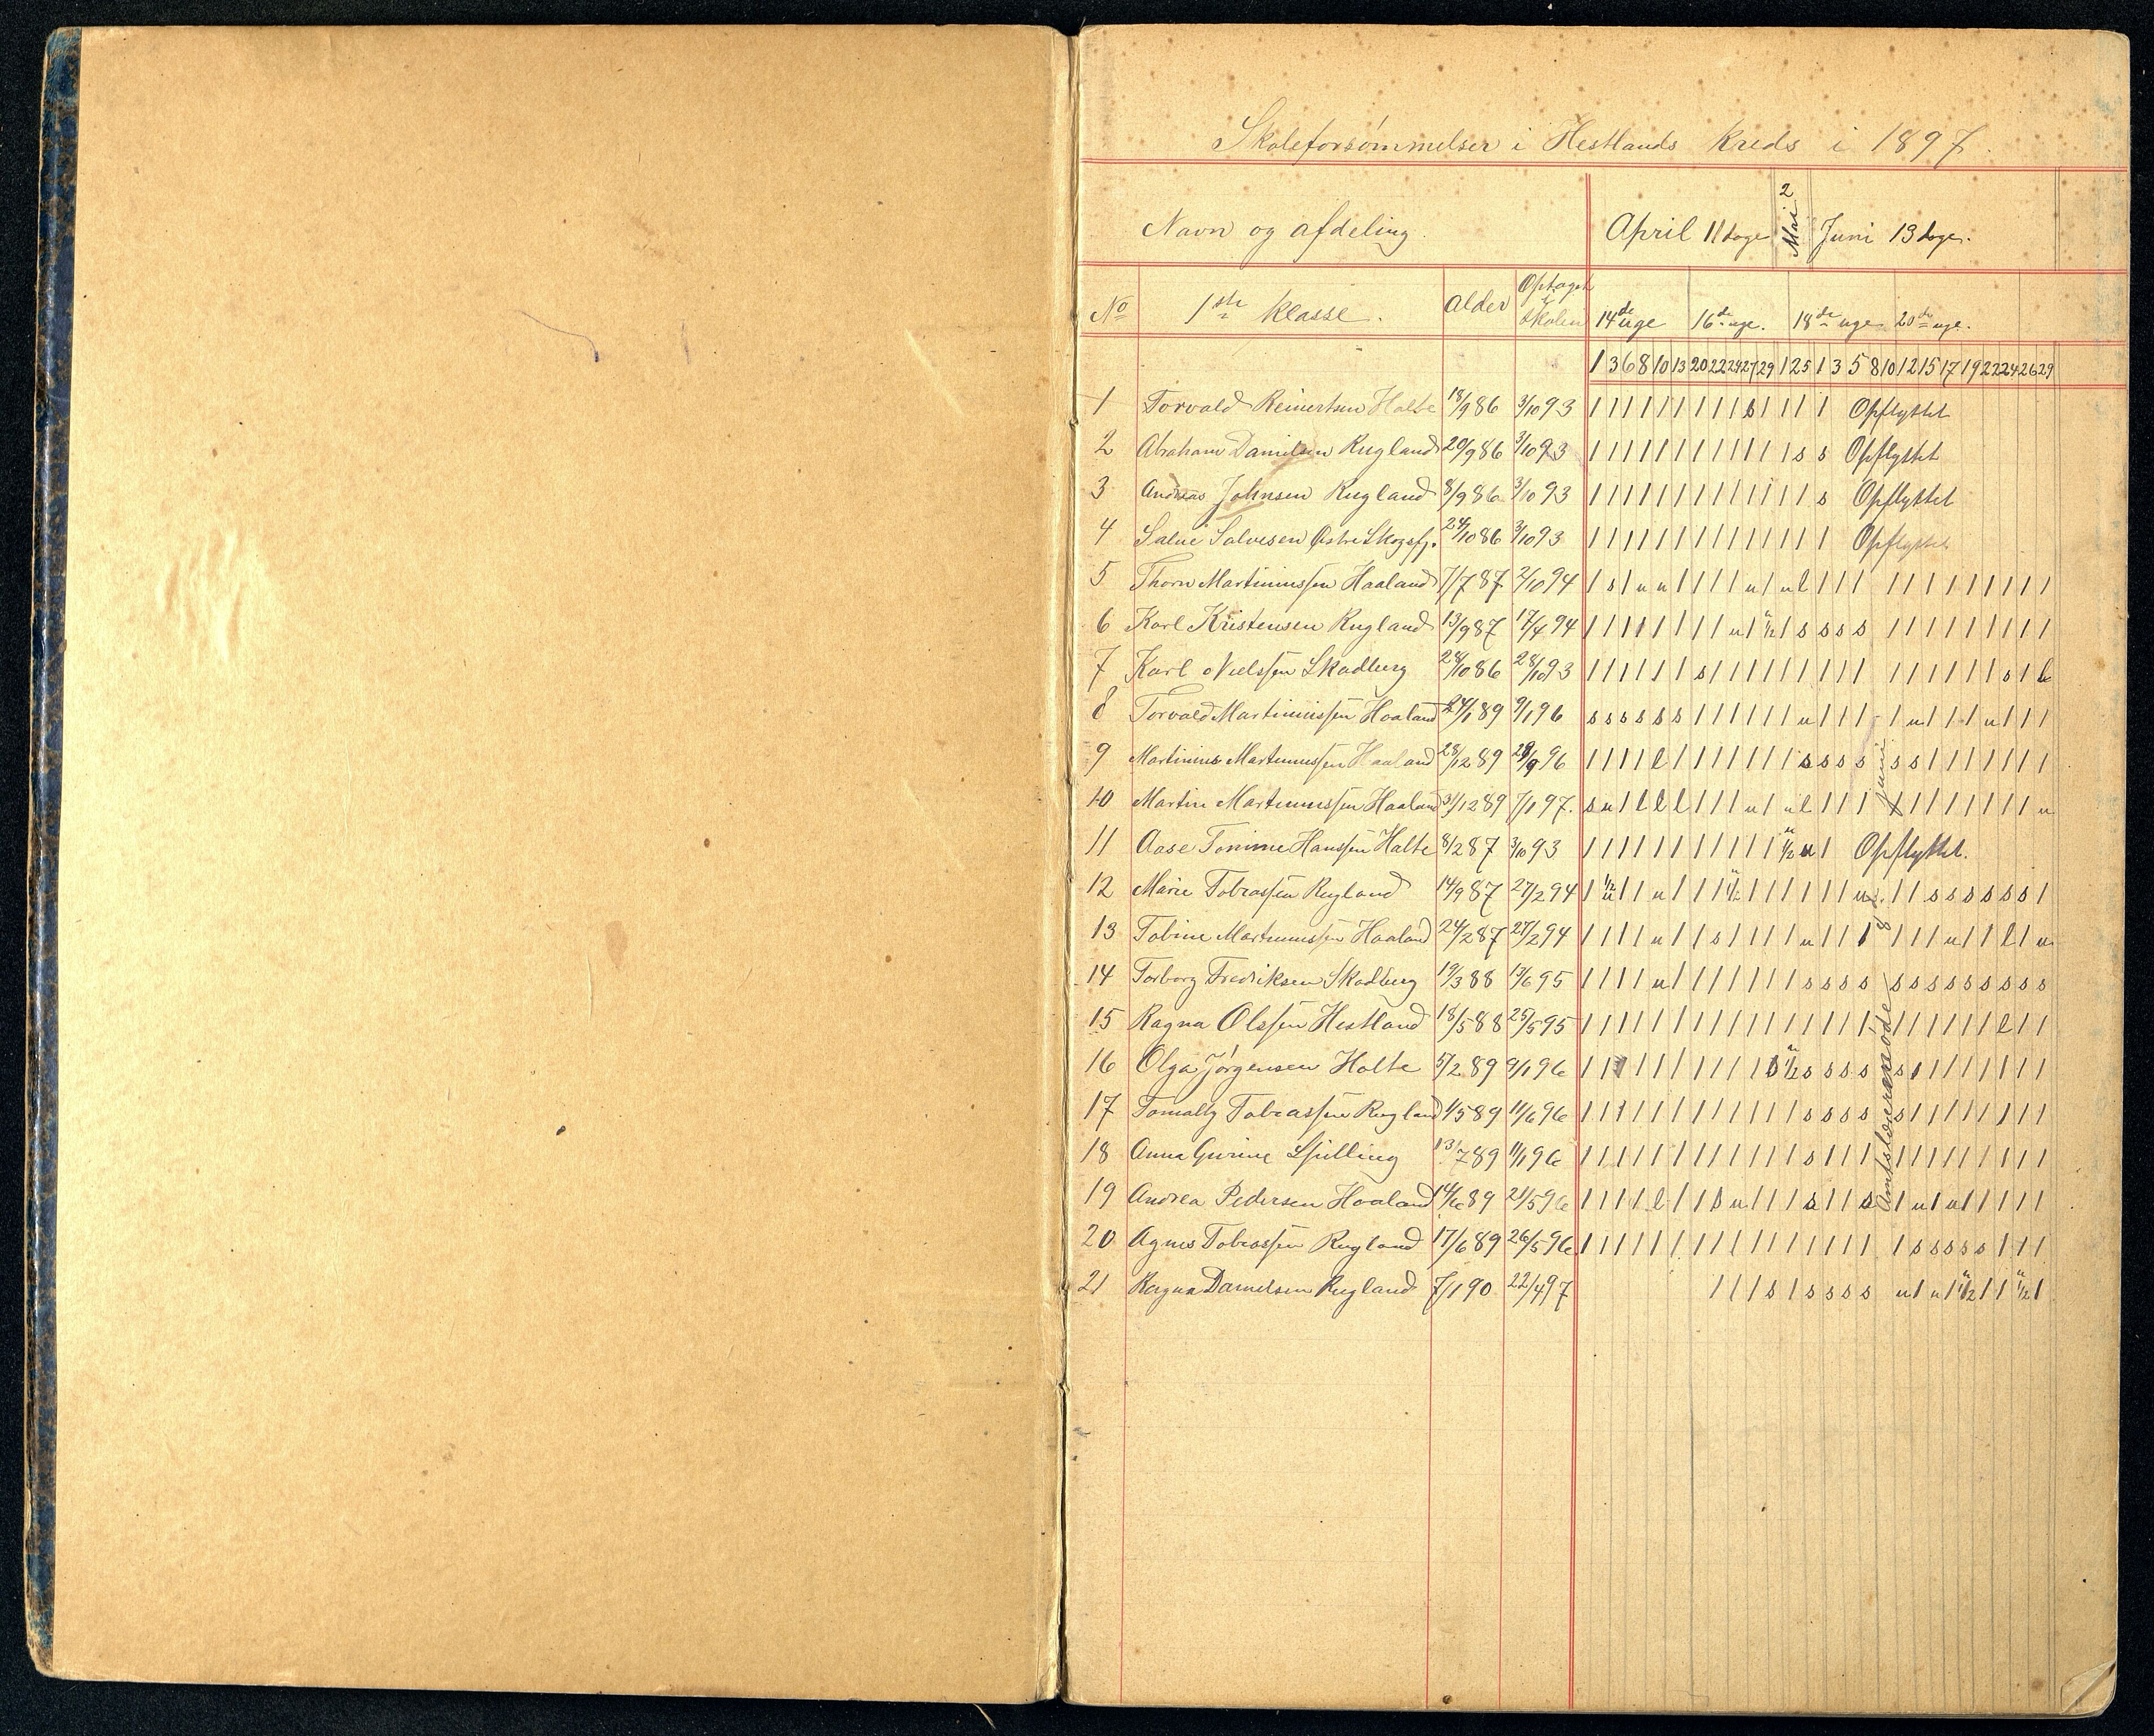 Skoleforsømmelser i Hestlands Kreds i 1897.
Navn og afdeling. April 11 dage Mai 2 Juni 13 dage.
No 1ste klasse. Alder Optaget i skolen 14de uge 16de uge. 18de uge 20de uge.
1 3 6 8 10 13 20 22 24 27 29 1 25 1 3 5 8 10 12 15 17 19 22 24 26 29
1 Torvald Reinertsen Holte 18/9 86 3/10 93 Opflyttet
2 Abraham Danielsen Rugland 20/9 86 3/10 93 Opflyttet
3 Andreas Johnsen Rugland 8/9 86 3/10 93 Opflyttet
4 Salve Salvesen Østre Skogsfj. 24/10 86 3/10 93 Opflyttet
5 Thorn Martiniussen Haaland 7/7 87 2/10 94
6 Karl Kristensen Rugland 13/9 87 17/4 94
7 Karl Nielssen Skadberg 28/10 86 28/10 93
8 Torvald Martiniussen Haaland 24/1 89 9/1 96
9 Martinius Martiniussen Haaland 28/12 89 28/9 96
10 Martin Martiniussen Haaland 31/12 89 7/1 97.
11 Aase Tomine Hanssen Halte 8/2 87 3/10 93 Opflyttet.
12 Marie Tobiassen Rugland 14/9 87 27/2 94
13 Tobine Martiniussen Haaland 24/2 87 27/2 94
14 Torborg Fredriksen Skadberg 19/3 88 13/6 95
15 Ragna Olssen Hestland 18/5 88 25/5 95
16 Olga Jørgensen Holte 5/2 89 9/1 96
17 Tomally Tobiassen Rugland 4/5 89 11/6 96
18 Anna Gurine Spilling 13/7 89 11/1 96
19 Andrea Pedersen Haaland 14/6 89 21/5 96
20 Agnes Tobiassen Rugland 17/6 89 26/5 96
21 Ragna Danielsen Rugland 7/1 90 22/4 97
Amtslærermøde 8 juni